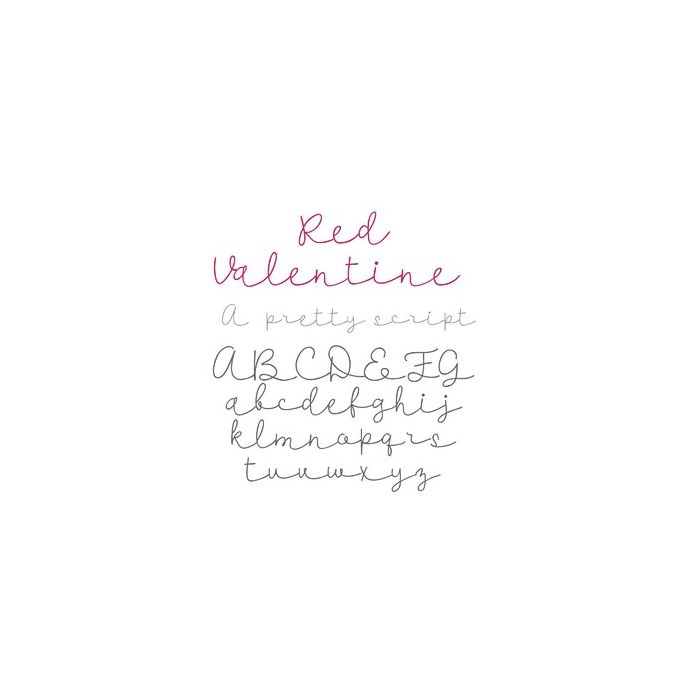 Red
Valentine
A pretty script
ABCDEFG
abcdefghij
klmnopqrs
tuvwxyz